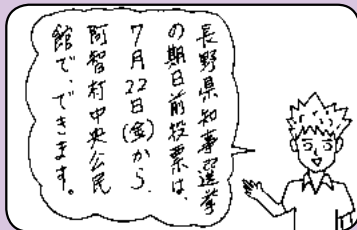 長野県知事選挙
の期日前投票は、
7月22日(金)から、
阿智村中央公民
館で、できます。